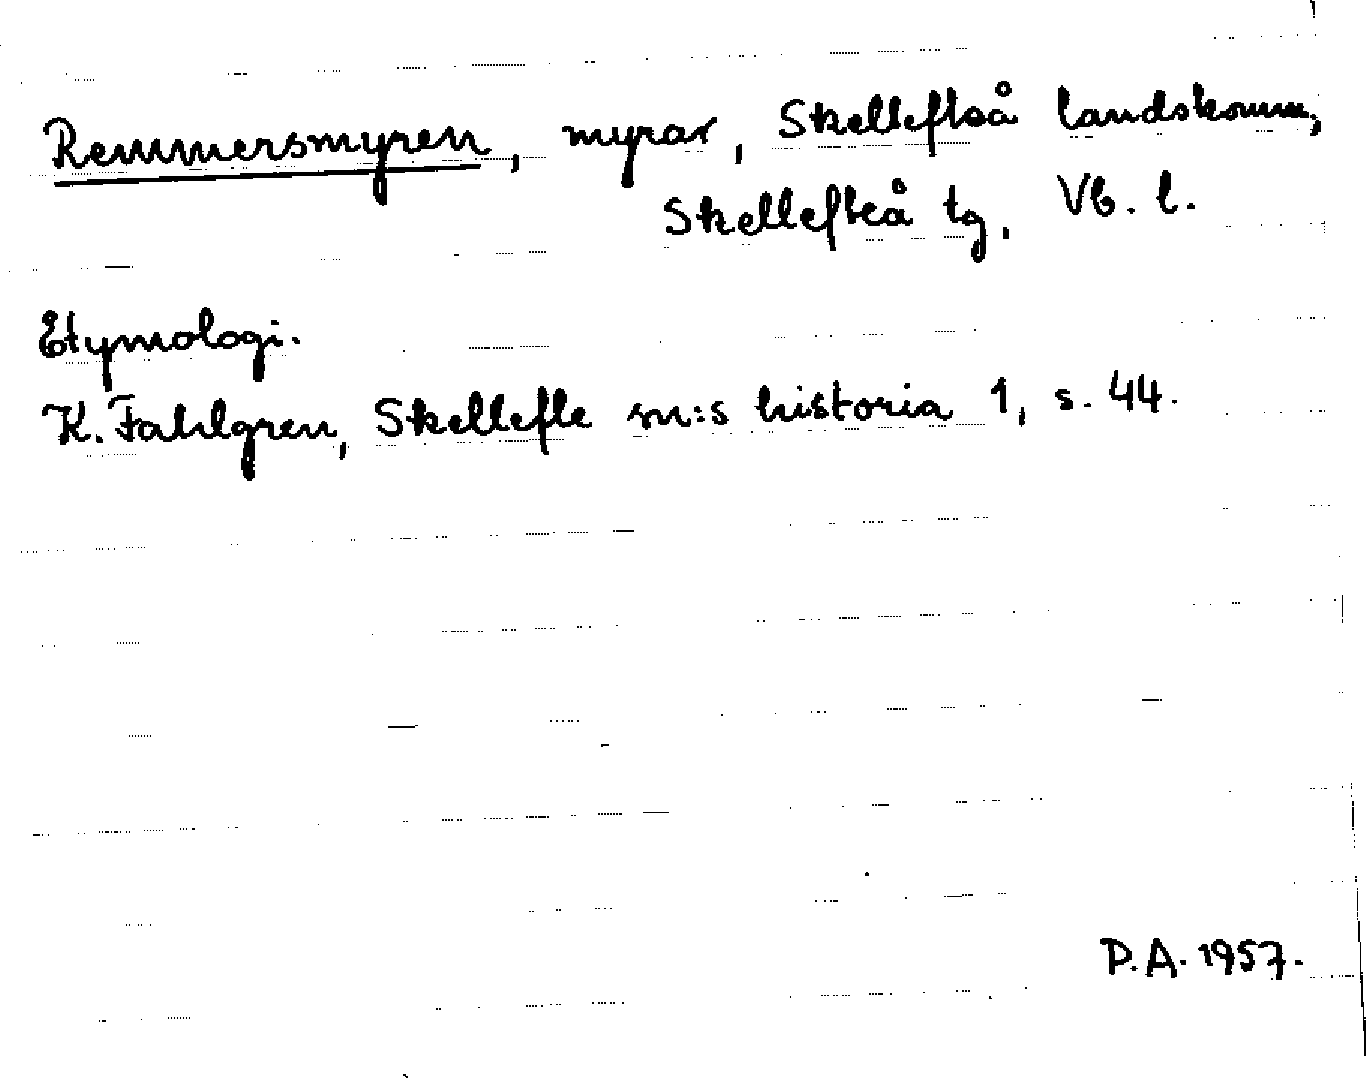 Remmersmyren, myrar, Skellefteå landskomm,
Skellefteå tg, Vb. l.
Etymologi.
K. Fahlgren, Skellefte sn:s historia 1, s. 44.
P.A. 1957.